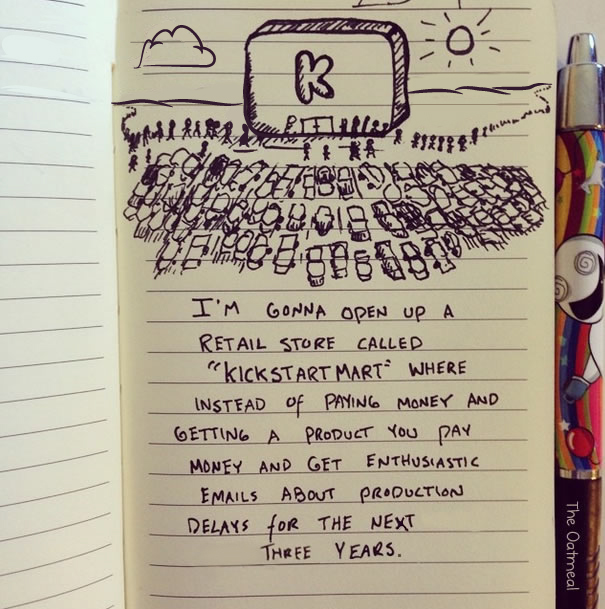 K
I'M GONNA OPEN UP A
RETAIL STORE CALLED
"KICKSTARTMART" WHERE
INSTEAD OF PAYING MONEY AND
GETTING A PRODUCT YOU PAY
MONEY AND GET ENTHUSIASTIC
EMAILS ABOUT PRODUCTION
DELAYS FOR THE NEXT
THREE YEARS.
The Oatmeal